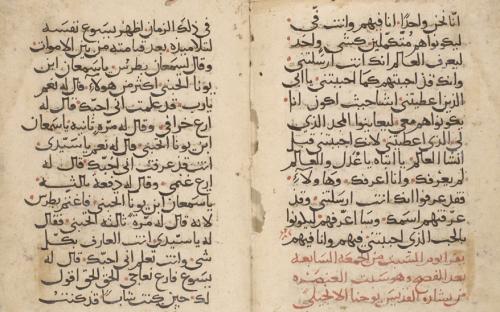 انا نحن واحدًا انا فيهم وانت فيّ
ليكونوا هم متكملين كشي واحد
ليعرف العالم انك انت ارسلتني
وانك قد احببتهم كما احببتني يا ابي
الذين اعطيتني اشا حيث اكون انا
يكونوا هم معي ليعاينوا المجد الذي
لي الذي اعطيتني لانك احببتني قبل
انشا العالم يا ابتاه يا عدل والعالم
لم يعرفك وانا اعرفك وها ولاء
فقد عرفوا انك انت ارسلتني وقد
عرفتهم اسمك وسا اعرفهم ليكونوا
بالحب الذي احببتني فيهم وانا فيهم
يقرا يوم السبت من الجمعه السابعه
بعد الفصح وهو سبت العنصره
من بشاره القديس يوحنا الانجيلي
في ذلك الزمان اظهر يسوع نفسه
لتلاميذه بعد قيامته من بين الاموات
وقال لسمعان بطرس يا سمعان ابن
يونا اتحبني اكثر من هولاء قال له نعم
يا رب قد علمت اني احبك قال له
ارع خرافي وقال له مره ثانيه يا سمعان
ابن يونا اتحبني قال له نعم يا سيدي
انت قد عرفت اني احبك قال له
ارع غنمي وقال له دفعه ثالثه
يا سمعان ابن يونا اتحبني فاغتم بطرس
لانه قال له مره ثالثه اتحبني فقال
له يا سيدي انت العارف بكل
شي وانت تعلم اني احبك قال له
يسوع فارع نعاجي الحق الحق اقول
لك حين كنت شابًا قد كنت